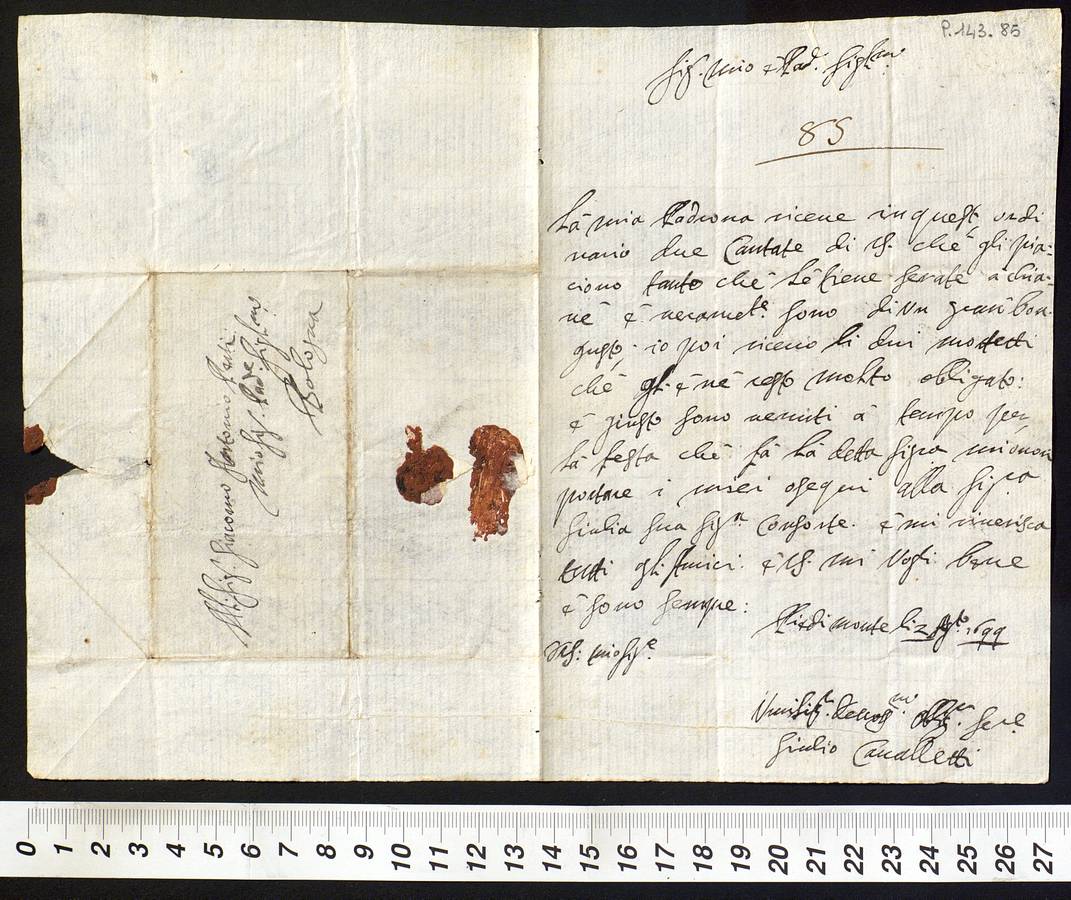 P.143.85
Sig. mio è Pad. Sig.
85
La mia Padrona riceue in quest ordi
nario due Cantate di VS. chè gli pia:
ciono tanto chè lè tiene serate a chia:
ue è ueramte. sono di un gran bon
gusto. io poi riceuo li dui mottetti
chè gl. è nè resto molto obligato:
è giusto sono uenuti à tempo per
la festa chè fà la detta Sigra mi onori
portare i miei osequi alla Sigra
Giulia sua Sigra Consorte. è mi riuerisca
tutti gl. Amici. è VS. mi Vogli bene
è sono sempre:
Piedimonte li 2 Agto. 1699
DVS. mio Sigre.
Deuotmo. Serre.
Giulio Caualletti
Al Sig. Giacomo Antonio Perti
mio Sig. Pad.
Bologna
0 1 2 3 4 5 6 7 8 9 10 11 12 13 14 15 16 17 18 19 20 21 22 23 24 25 26 27